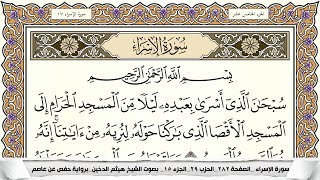 سورة الإسراء ١٧
الجزء الخامس عشر
سُورَةُ الْإِسْرَاءِ
بِسْمِ اللَّهِ الرَّحْمَٰنِ الرَّحِيمِ
سُبْحَٰنَ الَّذِي أَسْرَىٰ بِعَبْدِهِ لَيْلًا مِّنَ الْمَسْجِدِ الْحَرَامِ إِلَى
الْمَسْجِدِ الْأَقْصَا الَّذِي بَٰرَكْنَا حَوْلَهُ لِنُرِيَهُ مِنْ ءَايَٰتِنَا ۚ إِنَّهُ
سورة الإسراء . الصفحة ٢٨٢ . الحزب ٢٩ . الجزء ١٥ . بصوت الشيخ هيثم الدخين . برواية حفص عن عاصم